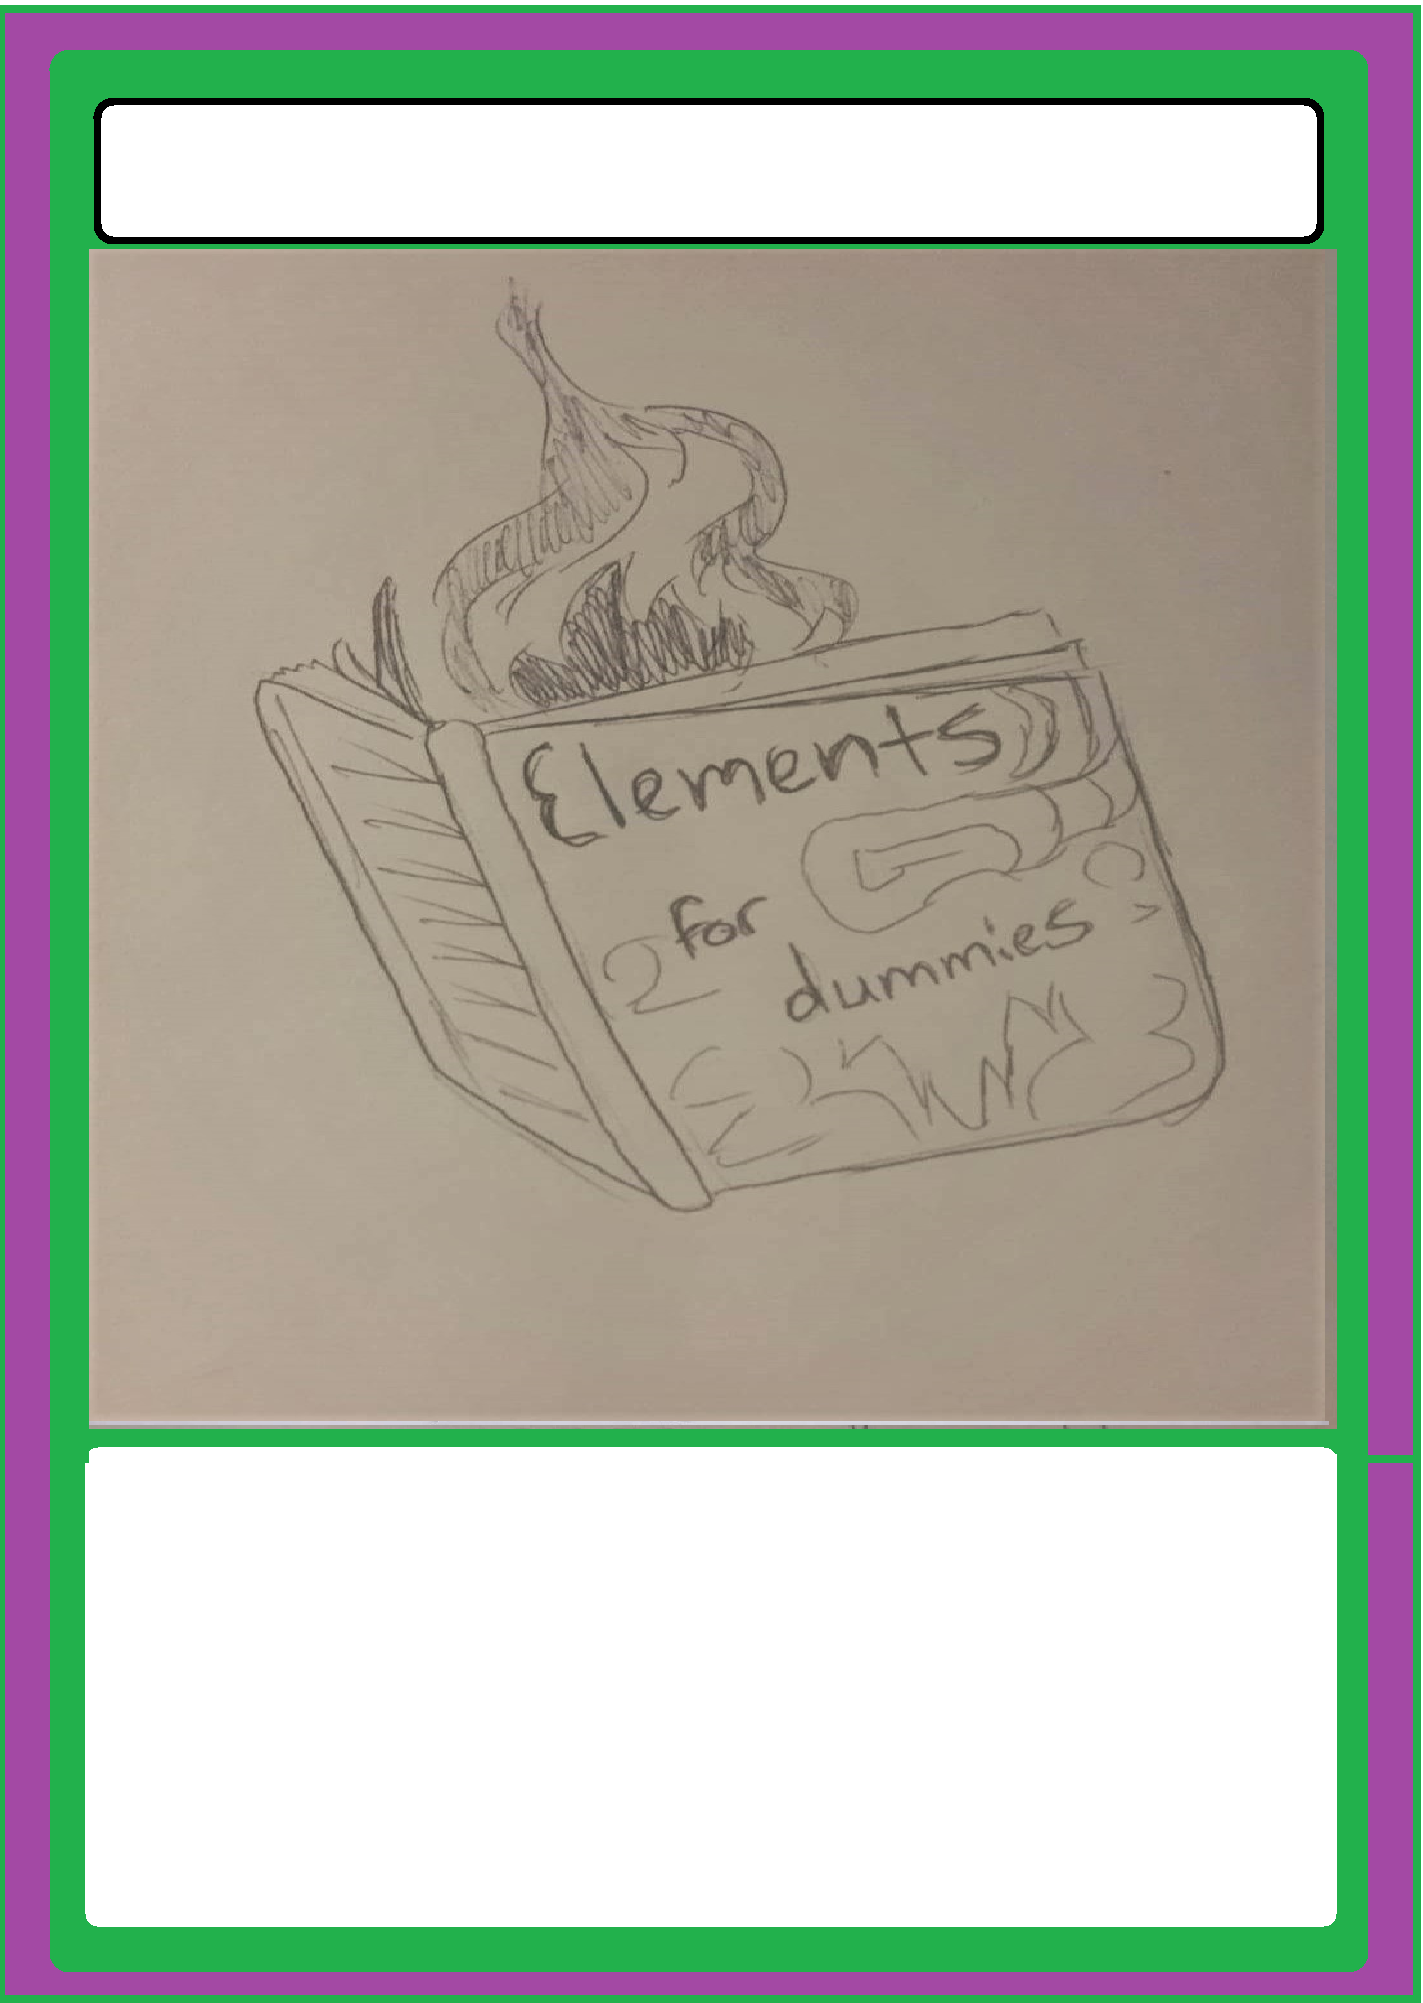 Elements
2 for
dummies